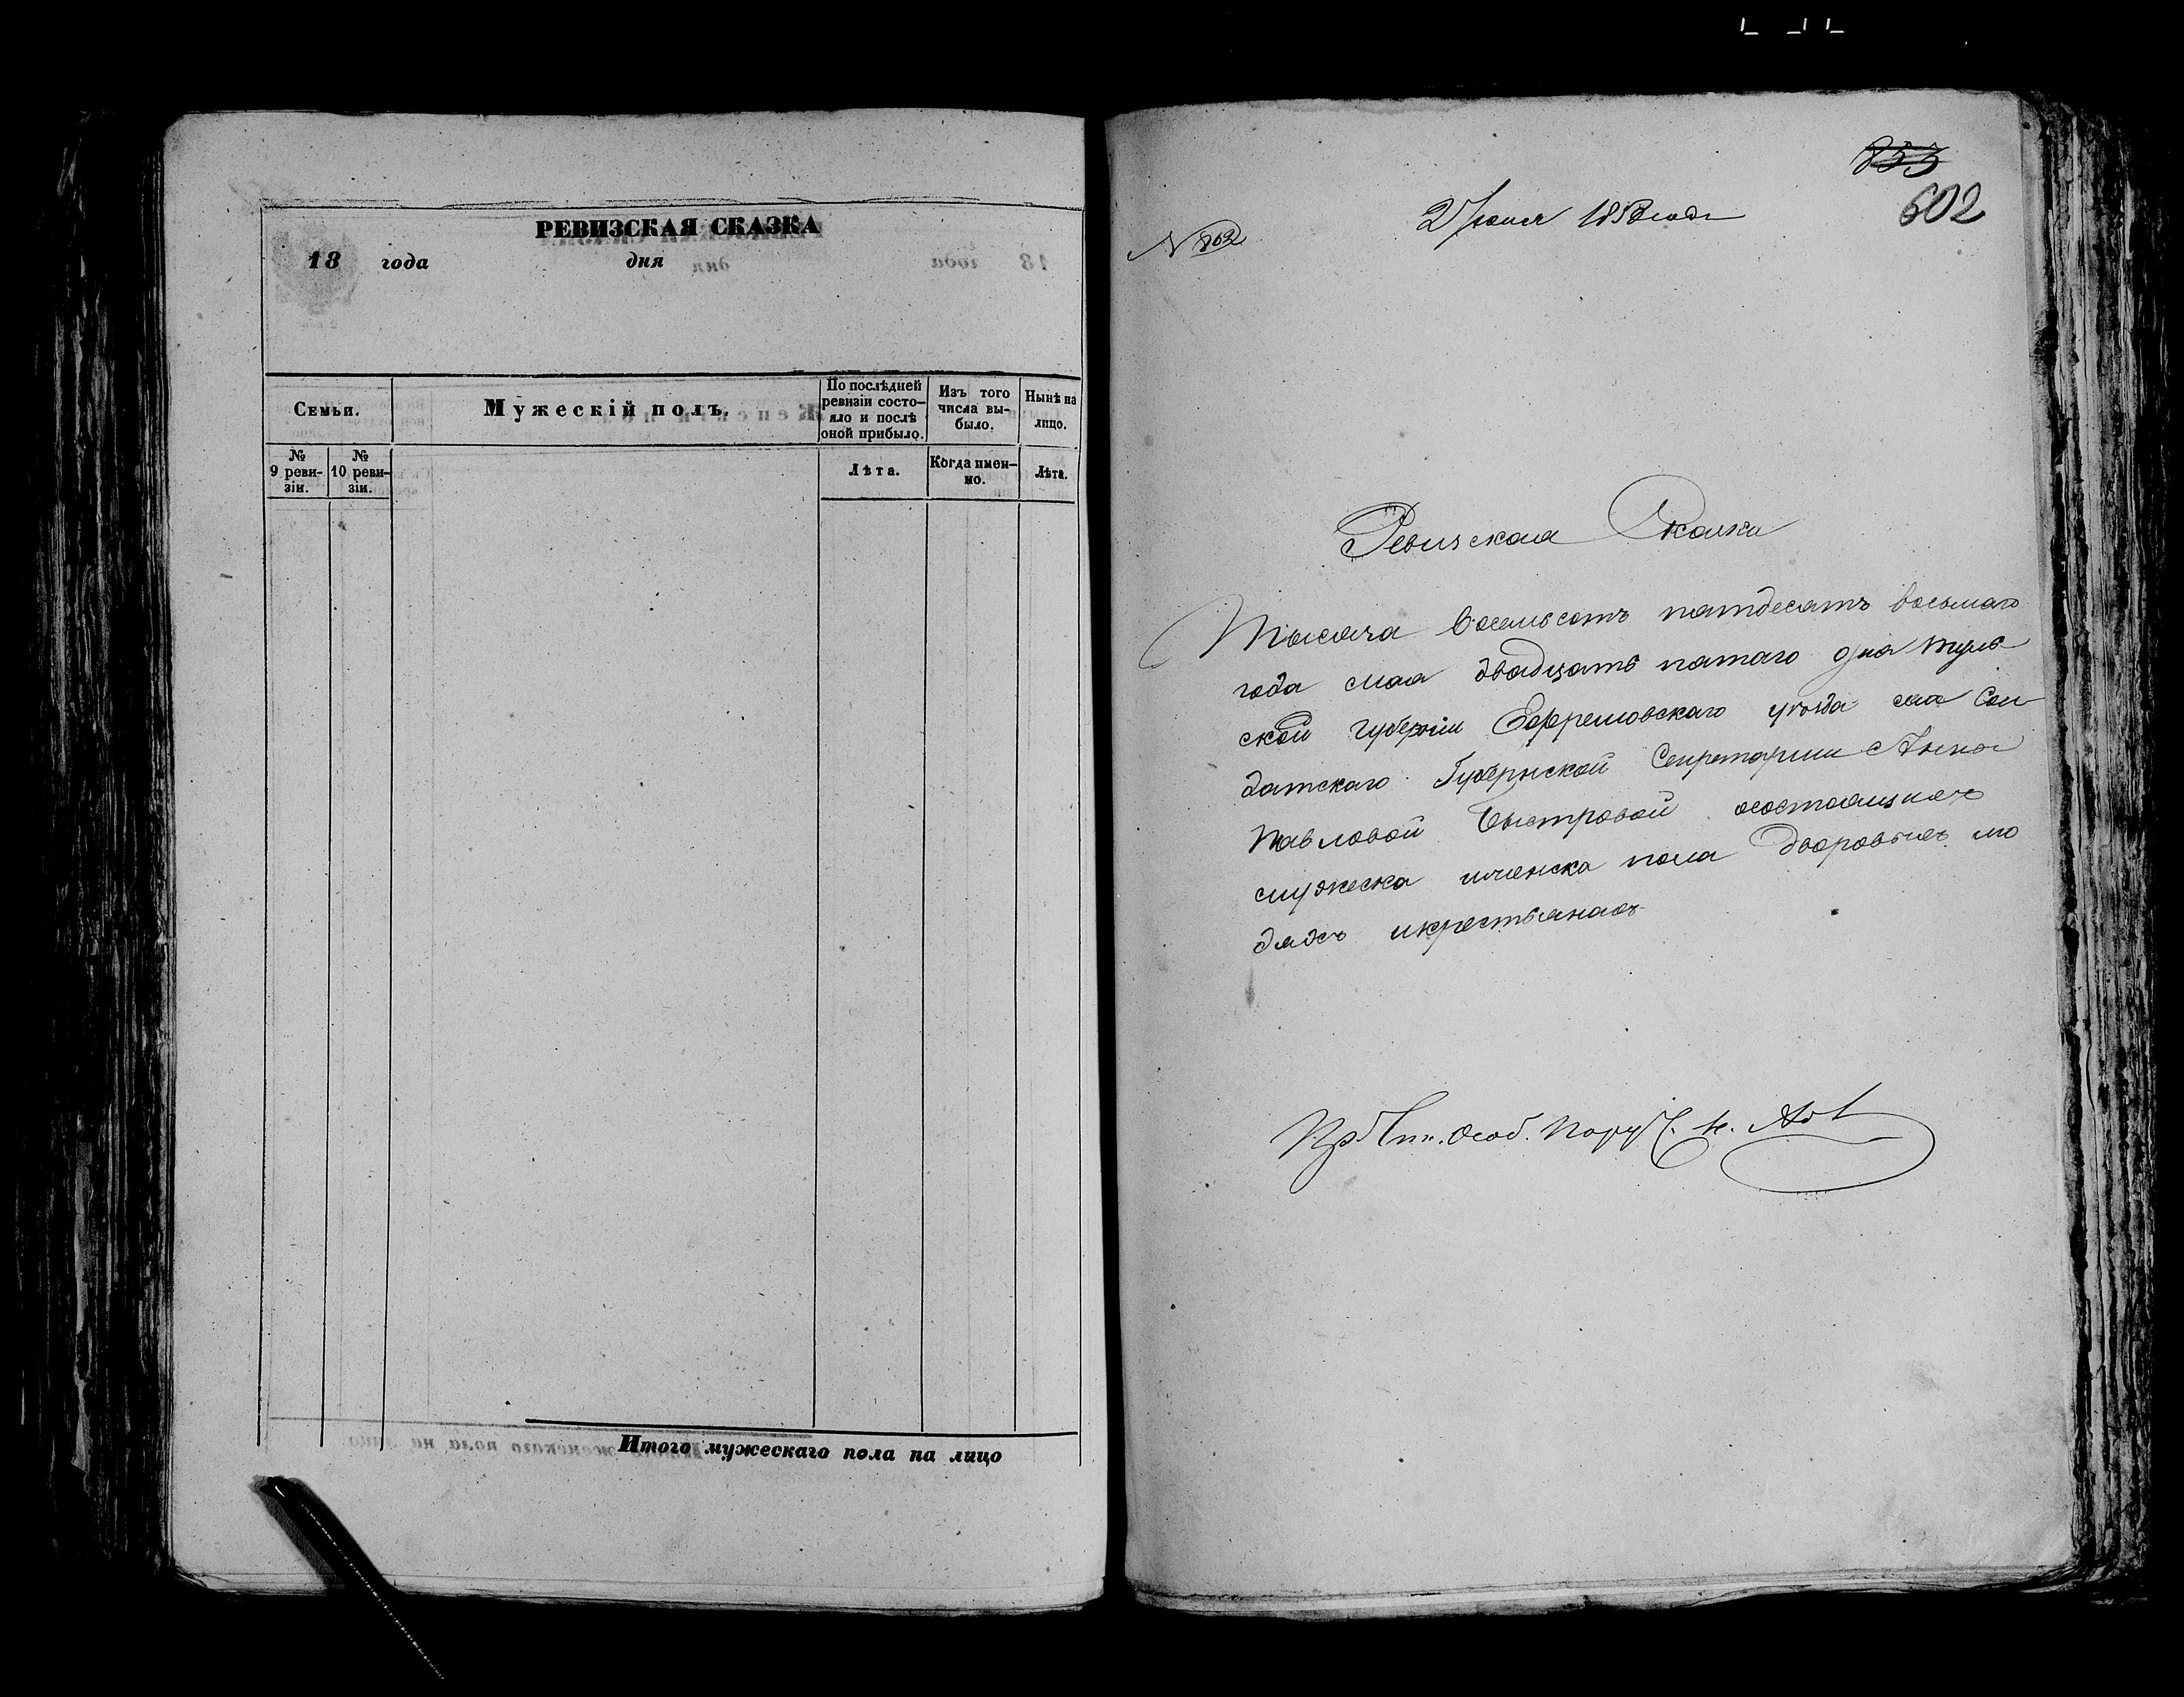 РЕВИЗСКАЯ СКАЗКА
18 года дня
Семьи.
Мужескій полъ.
По послѣдней ревизіи состо-яло и послѣ оной прибыло.
Изъ того числа вы-было.
Нынѣ на лицо.
№ 9 реви-зіи.
№ 10 реви-зіи.
Лѣта.
Когда имен-но.
Лѣта.
Итого мужескаго пола на лицо
853
602
2 Іюня 1858 года
N 802
Ревизская Сказка
Тысяча восемьсотъ пятдесятъ восьмаго
года мая двадцать пятаго дня Туль
ской губерніи Ефремовскаго уѣзда села Сол
датскаго Губернской Секретарши Анны
Павловой Быстровой осостоящихъ
мужеска иженска пола дворовыхъ лю
дяхъ икрестьянахъ